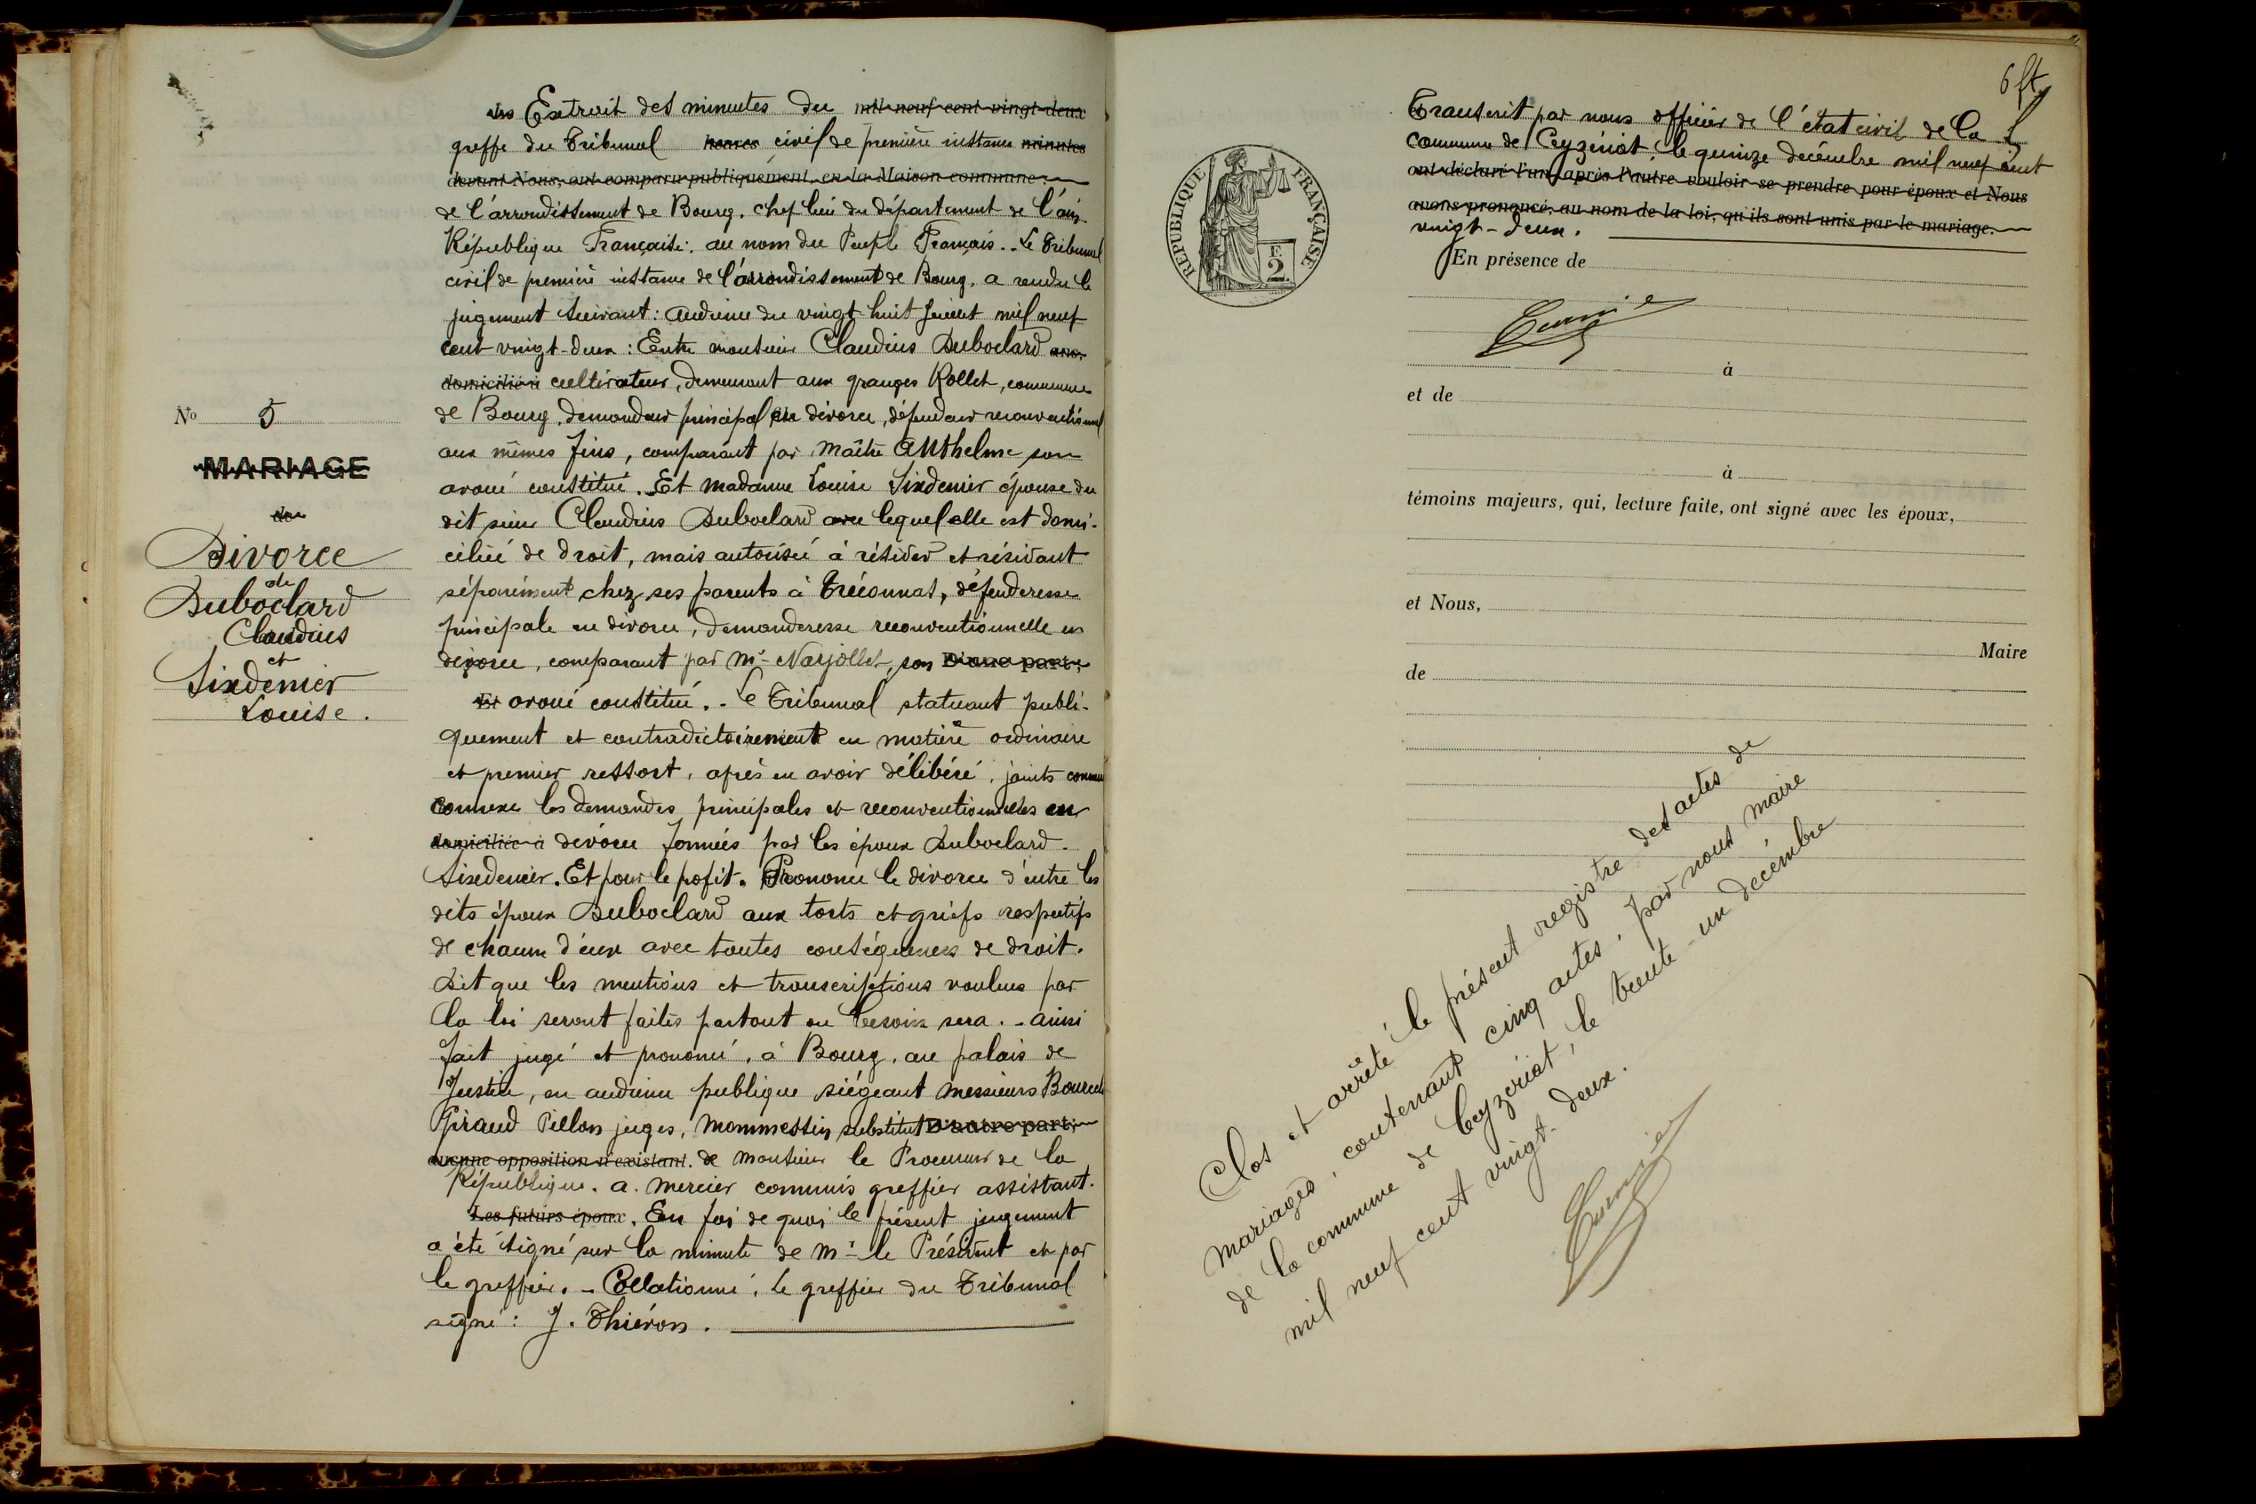 N° 5
MARIAGE
de
Divorce
de
Duboclard
Claudius
et
Sixdenier
Louise.
Extrait des minutes du mil neuf cent vingt-deux
greffe du Tribunal heures civil de première instance minutes
devant Nous, ont comparu publiquement, en la Maison commune:
de l'arrondissement de Bourg, chef lieu du département de l'ain.
République Française, au nom du Peuple Français. - Le Tribunal
civil de première instance de l'arrondissement de Bourg, a rendu le
jugement suivant: audience du vingt-huit Juillet mil neuf
cent vingt-deux: Entre monsieur Claudius Duboclard
domicilié à cultivateur, demeurant aux granges Rollet, commune
de Bourg, demandeur principal en divorce, défendeur reconventionnel
aux mêmes fins, comparant par maître Anthelme son
avoué constitué. Et madame Louise Sixdenier épouse du
dit sieur Claudius Duboclard avec lequel elle est domi-
ciliée de droit, mais autorisée à résider et résidant
séparément chez ses parents à Tréconnas, défenderesse
principale en divorce, demanderesse reconventionnelle en
divorce, comparant par Me Narjollet, son D'une part;
Et avoué constitué. - Le Tribunal statuant publi-
quement et contradictoirement en matière ordinaire
et premier ressort, après en avoir délibéré, joints comme
connexe les demandes principales et reconventionnelles en
domiciliée à divorce formées par les époux Duboclard-
Sixdenier. Et pour le profit. Prononce le divorce d'entre les
dits époux Duboclard aux torts et griefs respectifs
de chacun d'eux avec toutes conséquences de droit.
Dit que les mentions et transcriptions voulues par
la loi seront faites partout ou besoin sera. - ainsi
fait jugé et prononcé, à Bourg, au palais de
Justice, en audience publique siégeant messieurs
Giraud Pillon juges, Mommessin substitut D'autre part;
aucune opposition n'existant. de monsieur le Procureur de la
République. a. mercier commis greffier assistant.
Les futurs époux. En foi de quoi le présent jugement
a été signé sur la minute de Mr le Président et par
le greffier. - Collationné, le greffier du Tribunal
signé: J. Thiéron.
REPUBLIQUE FRANÇAISE
F.
2
6
Transcrit par nous officier de l'état civil de la
commune de Ceyzériat, le quinze decembre mil neuf cent
ont déclaré l'un après l'autre vouloir se prendre pour époux et Nous
avons prononcé, au nom de la loi, qu'ils sont unis par le mariage.
vingt-deux.
En présence de
à
et de
à
témoins majeurs, qui, lecture faite, ont signé avec les époux,
et Nous,
Maire
de
Clos et arrêté le présent registre des actes de
mariages, contenant cinq actes, par nous maire
de la commune de Ceyzériat, le trente-un decembre
mil neuf cent vingt-deux.